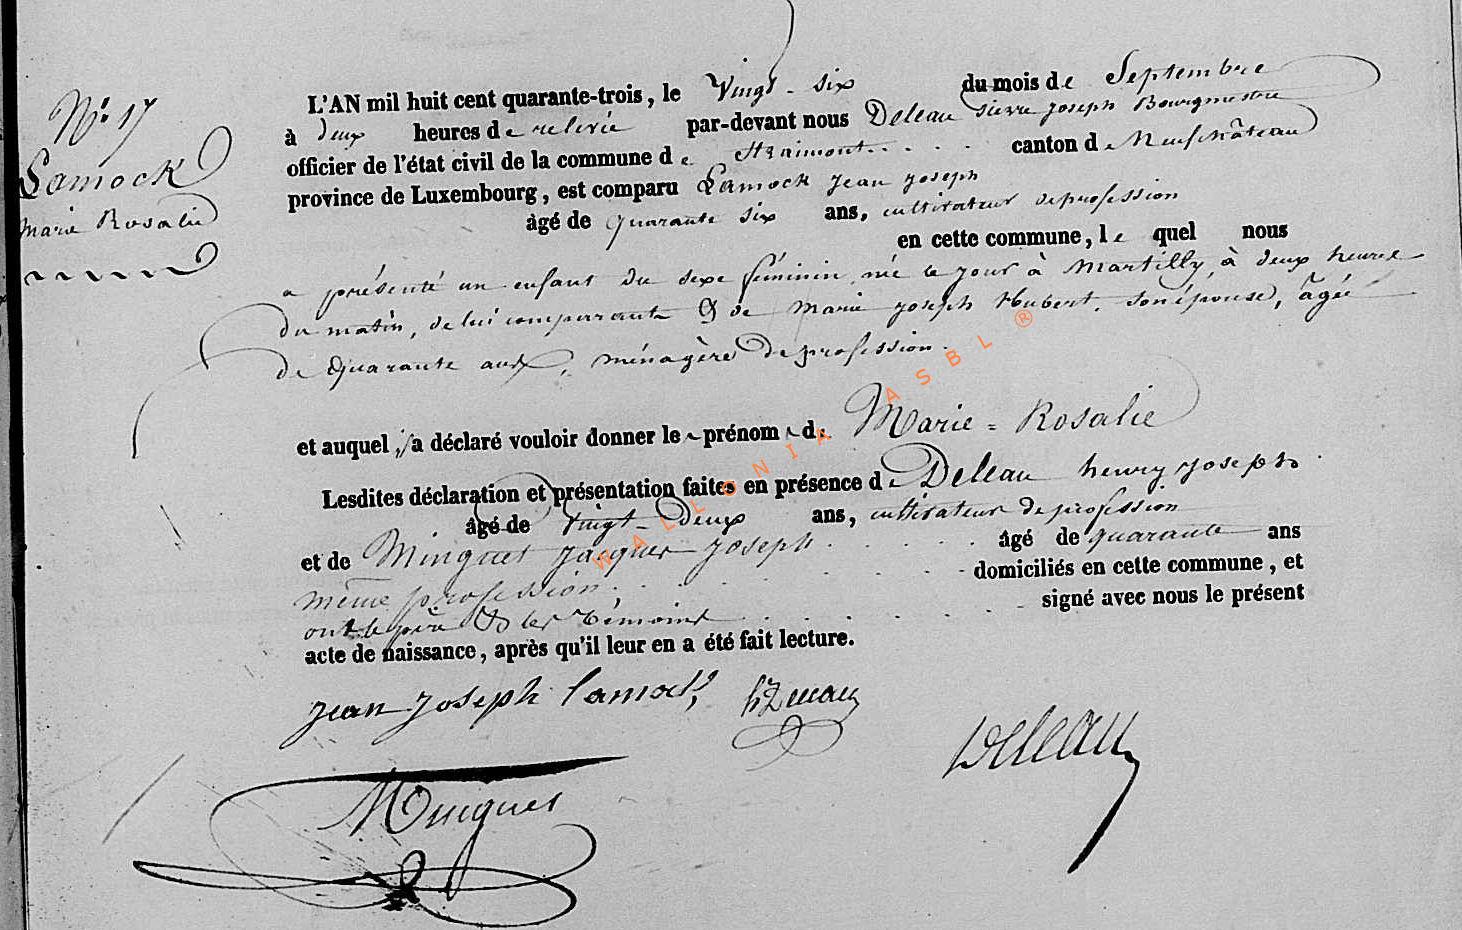 N° 17
Lamock
Marie Rosalie
L'AN mil huit cent quarante-trois, le Vingt-six du mois de Septembre
à deux heures de relevée par-devant nous Deleau Pierre Joseph Bourgmestre
officier de l'état civil de la commune de Straimont . . . . canton de Neufchâteau
province de Luxembourg, est comparu Lamock Jean Joseph
âgé de quarante six ans, cultivateur de profession
en cette commune, le quel nous
a présenté un enfant du sexe féminin, né ce jour à Martilly, à deux heures
du matin, de lui comparante & de Marie Joseph Hubert, son épouse, âgée
de Quarante ans, ménagère de profession.
et auquel il a déclaré vouloir donner le prénom de Marie-Rosalie
Lesdites déclaration et présentation faites en présence de Deleau henry Joseph
âgé de Vingt-deux ans, cultivateur de profession
et de Minguet Jacques Joseph . . . . . âgé de quarante ans
même profession . . . . . domiciliés en cette commune, et
ont le père & les témoins . . . . . signé avec nous le présent
acte de naissance, après qu'il leur en a été fait lecture.
Jean Joseph Lamock
Deleau
Minguet
WALLONIA ASBL ®